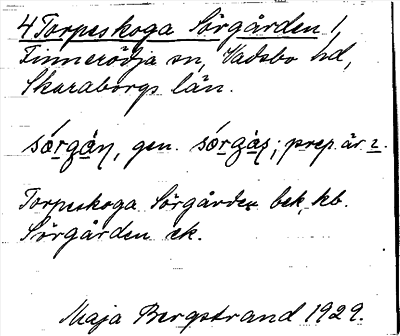 4 Torpeskoga Sörgården 1,
Finnerödja sn, Vadsbo hd,
Skaraborgs län.
sörgán, gen. sörgás; prep. är 2.
Torpeskoga Sörgården bek. kb.
Sörgården ek.
Maja Bergstrand 1929.